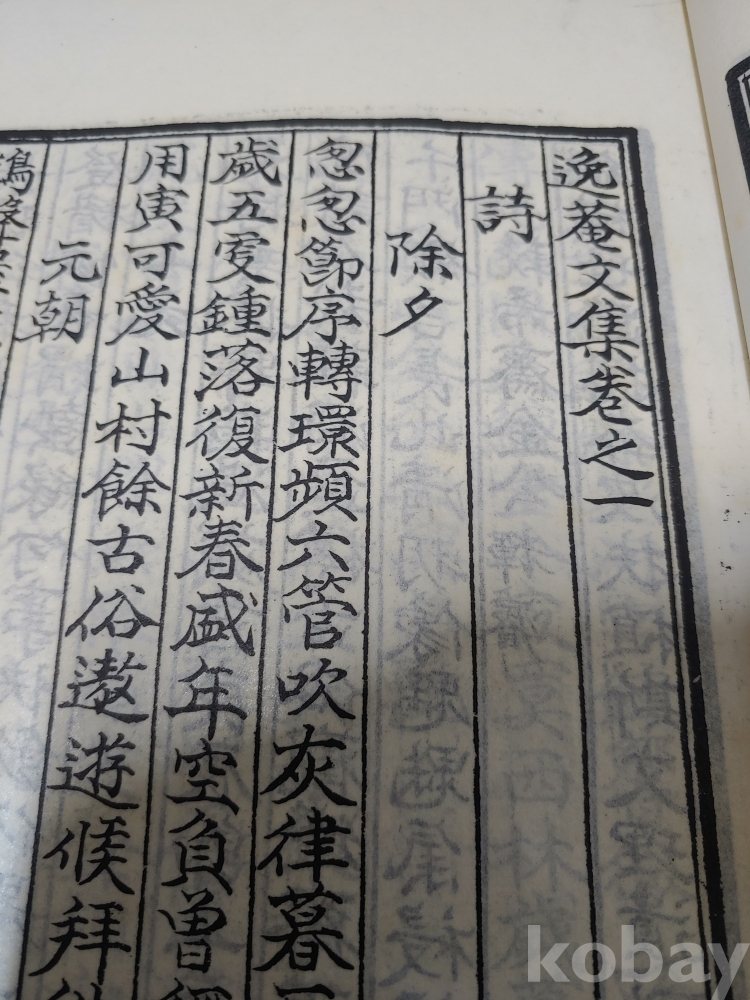 逸菴文集卷之一
詩
除夕
怱怱節序轉環頻六管吹灰律暮
歲五更鍾落復新春盛年空負曾
用寅可愛山村餘古俗遨遊候拜
元朝
kobay